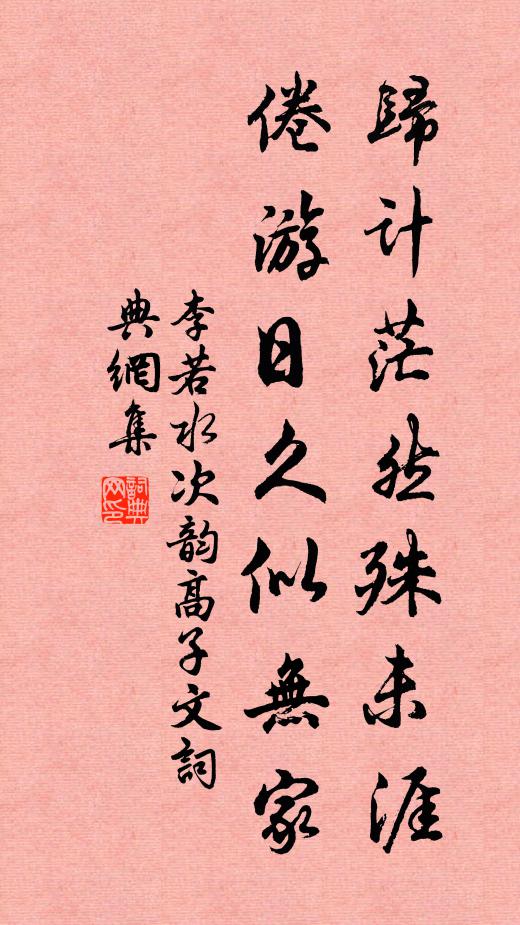 歸計茫然殊未涯
倦游日久似無家
李若水次韵高子文詞
典網集
詞典网印